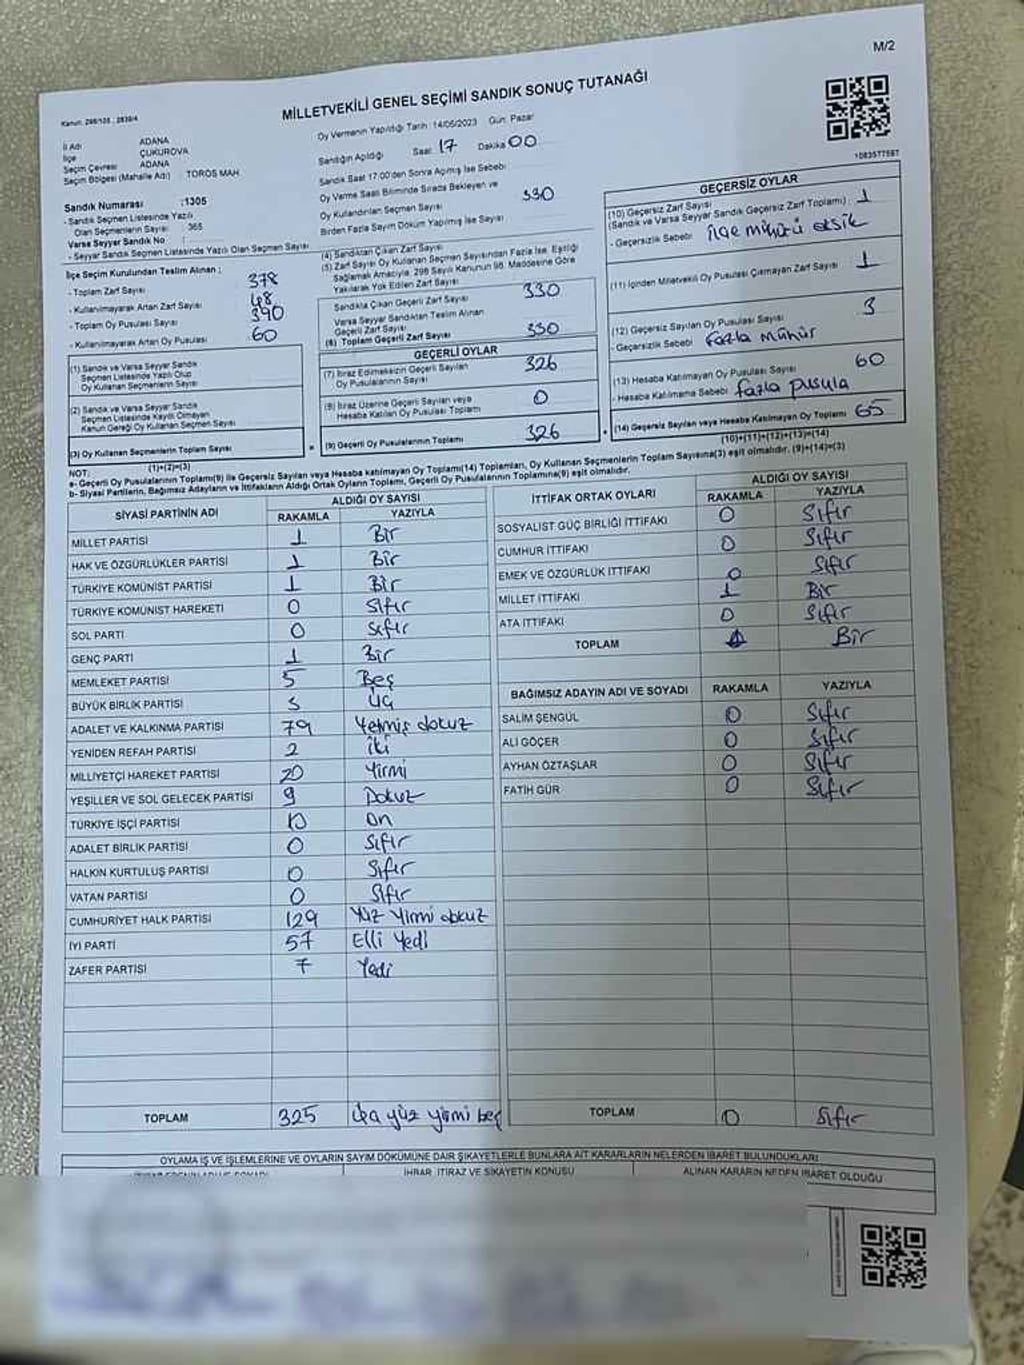 M/2
MİLLETVEKİLİ GENEL SEÇİMİ SANDIK SONUÇ TUTANAĞI
Kanun: 298/105 ; 2839/4
Oy Vermenin Yapıldığı Tarih: 14/05/2023 Gün: Pazar
İl Adı ADANA
İlçe ÇUKUROVA
Seçim Çevresi ADANA
Seçim Bölgesi (Mahalle Adı) TOROS MAH.
Sandığın Açıldığı Saat: 17 Dakika 00
Sandık Saat 17:00'den Sonra Açılmış İse Sebebi
Oy Verme Saati Bitiminde Sırada Bekleyen ve
Oy Kullandırılan Seçmen Sayısı
Birden Fazla Sayım Döküm Yapılmış İse Sayısı
330
Sandık Numarası :1305
- Sandık Seçmen Listesinde Yazılı
Olan Seçmenlerin Sayısı : 365
Varsa Seyyar Sandık No :
- Seyyar Sandık Seçmen Listesinde Yazılı Olan Seçmen Sayısı
İlçe Seçim Kurulundan Teslim Alınan ;
- Toplam Zarf Sayısı 378
- Kullanılmayarak Artan Zarf Sayısı 48
- Toplam Oy Pusulası Sayısı 390
- Kullanılmayarak Artan Oy Pusulası 60
(1) Sandık ve Varsa Seyyar Sandık
Seçmen Listesinde Yazılı Olup
Oy Kullanan Seçmenlerin Sayısı
(2) Sandık ve Varsa Seyyar Sandık
Seçmen Listesinde Kayıtlı Olmayan
Kanun Gereği Oy Kullanan Seçmen Sayısı
(3) Oy Kullanan Seçmenlerin Toplam Sayısı
(1)+(2)=(3)
(4) Sandıktan Çıkan Zarf Sayısı
(5) Zarf Sayısı Oy Kullanan Seçmen Sayısından Fazla İse, Eşitliği
Sağlamak Amacıyla, 298 Sayılı Kanunun 98. Maddesine Göre
Yakılarak Yok Edilen Zarf Sayısı
Sandıkta Çıkan Geçerli Zarf Sayısı 330
Varsa Seyyar Sandıktan Teslim Alınan
Geçerli Zarf Sayısı
(6) Toplam Geçerli Zarf Sayısı 330
GEÇERLİ OYLAR
(7) İtiraz Edilmeksizin Geçerli Sayılan
Oy Pusulalarının Sayısı 326
(8) İtiraz Üzerine Geçerli Sayılan veya
Hesaba Katılan Oy Pusulası Toplamı 0
= (9) Geçerli Oy Pusulalarının Toplamı 326
1083577587
GEÇERSİZ OYLAR
(10) Geçersiz Zarf Sayısı
(Sandık ve Varsa Seyyar Sandık Geçersiz Zarf Toplamı) : 1
- Geçersizlik Sebebi : ilçe mührü eksik
(11) İçinden Milletvekili Oy Pusulası Çıkmayan Zarf Sayısı 1
(12) Geçersiz Sayılan Oy Pusulası Sayısı 3
- Geçersizlik Sebebi fazla mühür
(13) Hesaba Katılmayan Oy Pusulası Sayısı 60
- Hesaba Katılmama Sebebi fazla pusula
+ (14) Geçersiz Sayılan veya Hesaba Katılmayan Oy Toplamı 65
(10)+(11)+(12)+(13)=(14)
NOT:
a- Geçerli Oy Pusulalarının Toplamı(9) ile Geçersiz Sayılan veya Hesaba katılmayan Oy Toplamı(14) Toplamları, Oy Kullanan Seçmenlerin Toplam Sayısına(3) eşit olmalıdır. (9)+(14)=(3)
b- Siyasi Partilerin, Bağımsız Adayların ve İttifakların Aldığı Ortak Oyların Toplamı, Geçerli Oy Pusulalarının Toplamına(9) eşit olmalıdır.
SİYASİ PARTİNİN ADI ALDIĞI OY SAYISI
RAKAMLA YAZIYLA
MİLLET PARTİSİ 1 Bir
HAK VE ÖZGÜRLÜKLER PARTİSİ 1 Bir
TÜRKİYE KOMÜNİST PARTİSİ 1 Bir
TÜRKİYE KOMÜNİST HAREKETİ 0 Sıfır
SOL PARTİ 0 Sıfır
GENÇ PARTİ 1 Bir
MEMLEKET PARTİSİ 5 Beş
BÜYÜK BİRLİK PARTİSİ 3 Üç
ADALET VE KALKINMA PARTİSİ 79 Yetmiş dokuz
YENİDEN REFAH PARTİSİ 2 iki
MİLLİYETÇİ HAREKET PARTİSİ 20 Yirmi
YEŞİLLER VE SOL GELECEK PARTİSİ 9 Dokuz
TÜRKİYE İŞÇİ PARTİSİ 10 On
ADALET BİRLİK PARTİSİ 0 Sıfır
HALKIN KURTULUŞ PARTİSİ 0 Sıfır
VATAN PARTİSİ 0 Sıfır
CUMHURİYET HALK PARTİSİ 129 Yüz Yirmi dokuz
İYİ PARTİ 57 Elli Yedi
ZAFER PARTİSİ 7 Yedi
TOPLAM 325 yüz yirmi beş
İTTİFAK ORTAK OYLARI ALDIĞI OY SAYISI
RAKAMLA YAZIYLA
SOSYALİST GÜÇ BİRLİĞİ İTTİFAKI 0 Sıfır
CUMHUR İTTİFAKI 0 Sıfır
EMEK VE ÖZGÜRLÜK İTTİFAKI 0 Sıfır
MİLLET İTTİFAKI 1 Bir
ATA İTTİFAKI 0 Sıfır
TOPLAM 1 Bir
BAĞIMSIZ ADAYIN ADI VE SOYADI RAKAMLA YAZIYLA
SALİM ŞENGÜL 0 Sıfır
ALİ GÖÇER 0 Sıfır
AYHAN ÖZTAŞLAR 0 Sıfır
FATİH GÜR 0 Sıfır
TOPLAM 0 Sıfır
OYLAMA İŞ VE İŞLEMLERİNE VE OYLARIN SAYIM DÖKÜMÜNE DAİR ŞİKAYETLERLE BUNLARA AİT KARARLARIN NELERDEN İBARET BULUNDUKLARI
İHBAR, İTİRAZ VE ŞİKAYETİN KONUSU ALINAN KARARIN NEDEN İBARET OLDUĞU